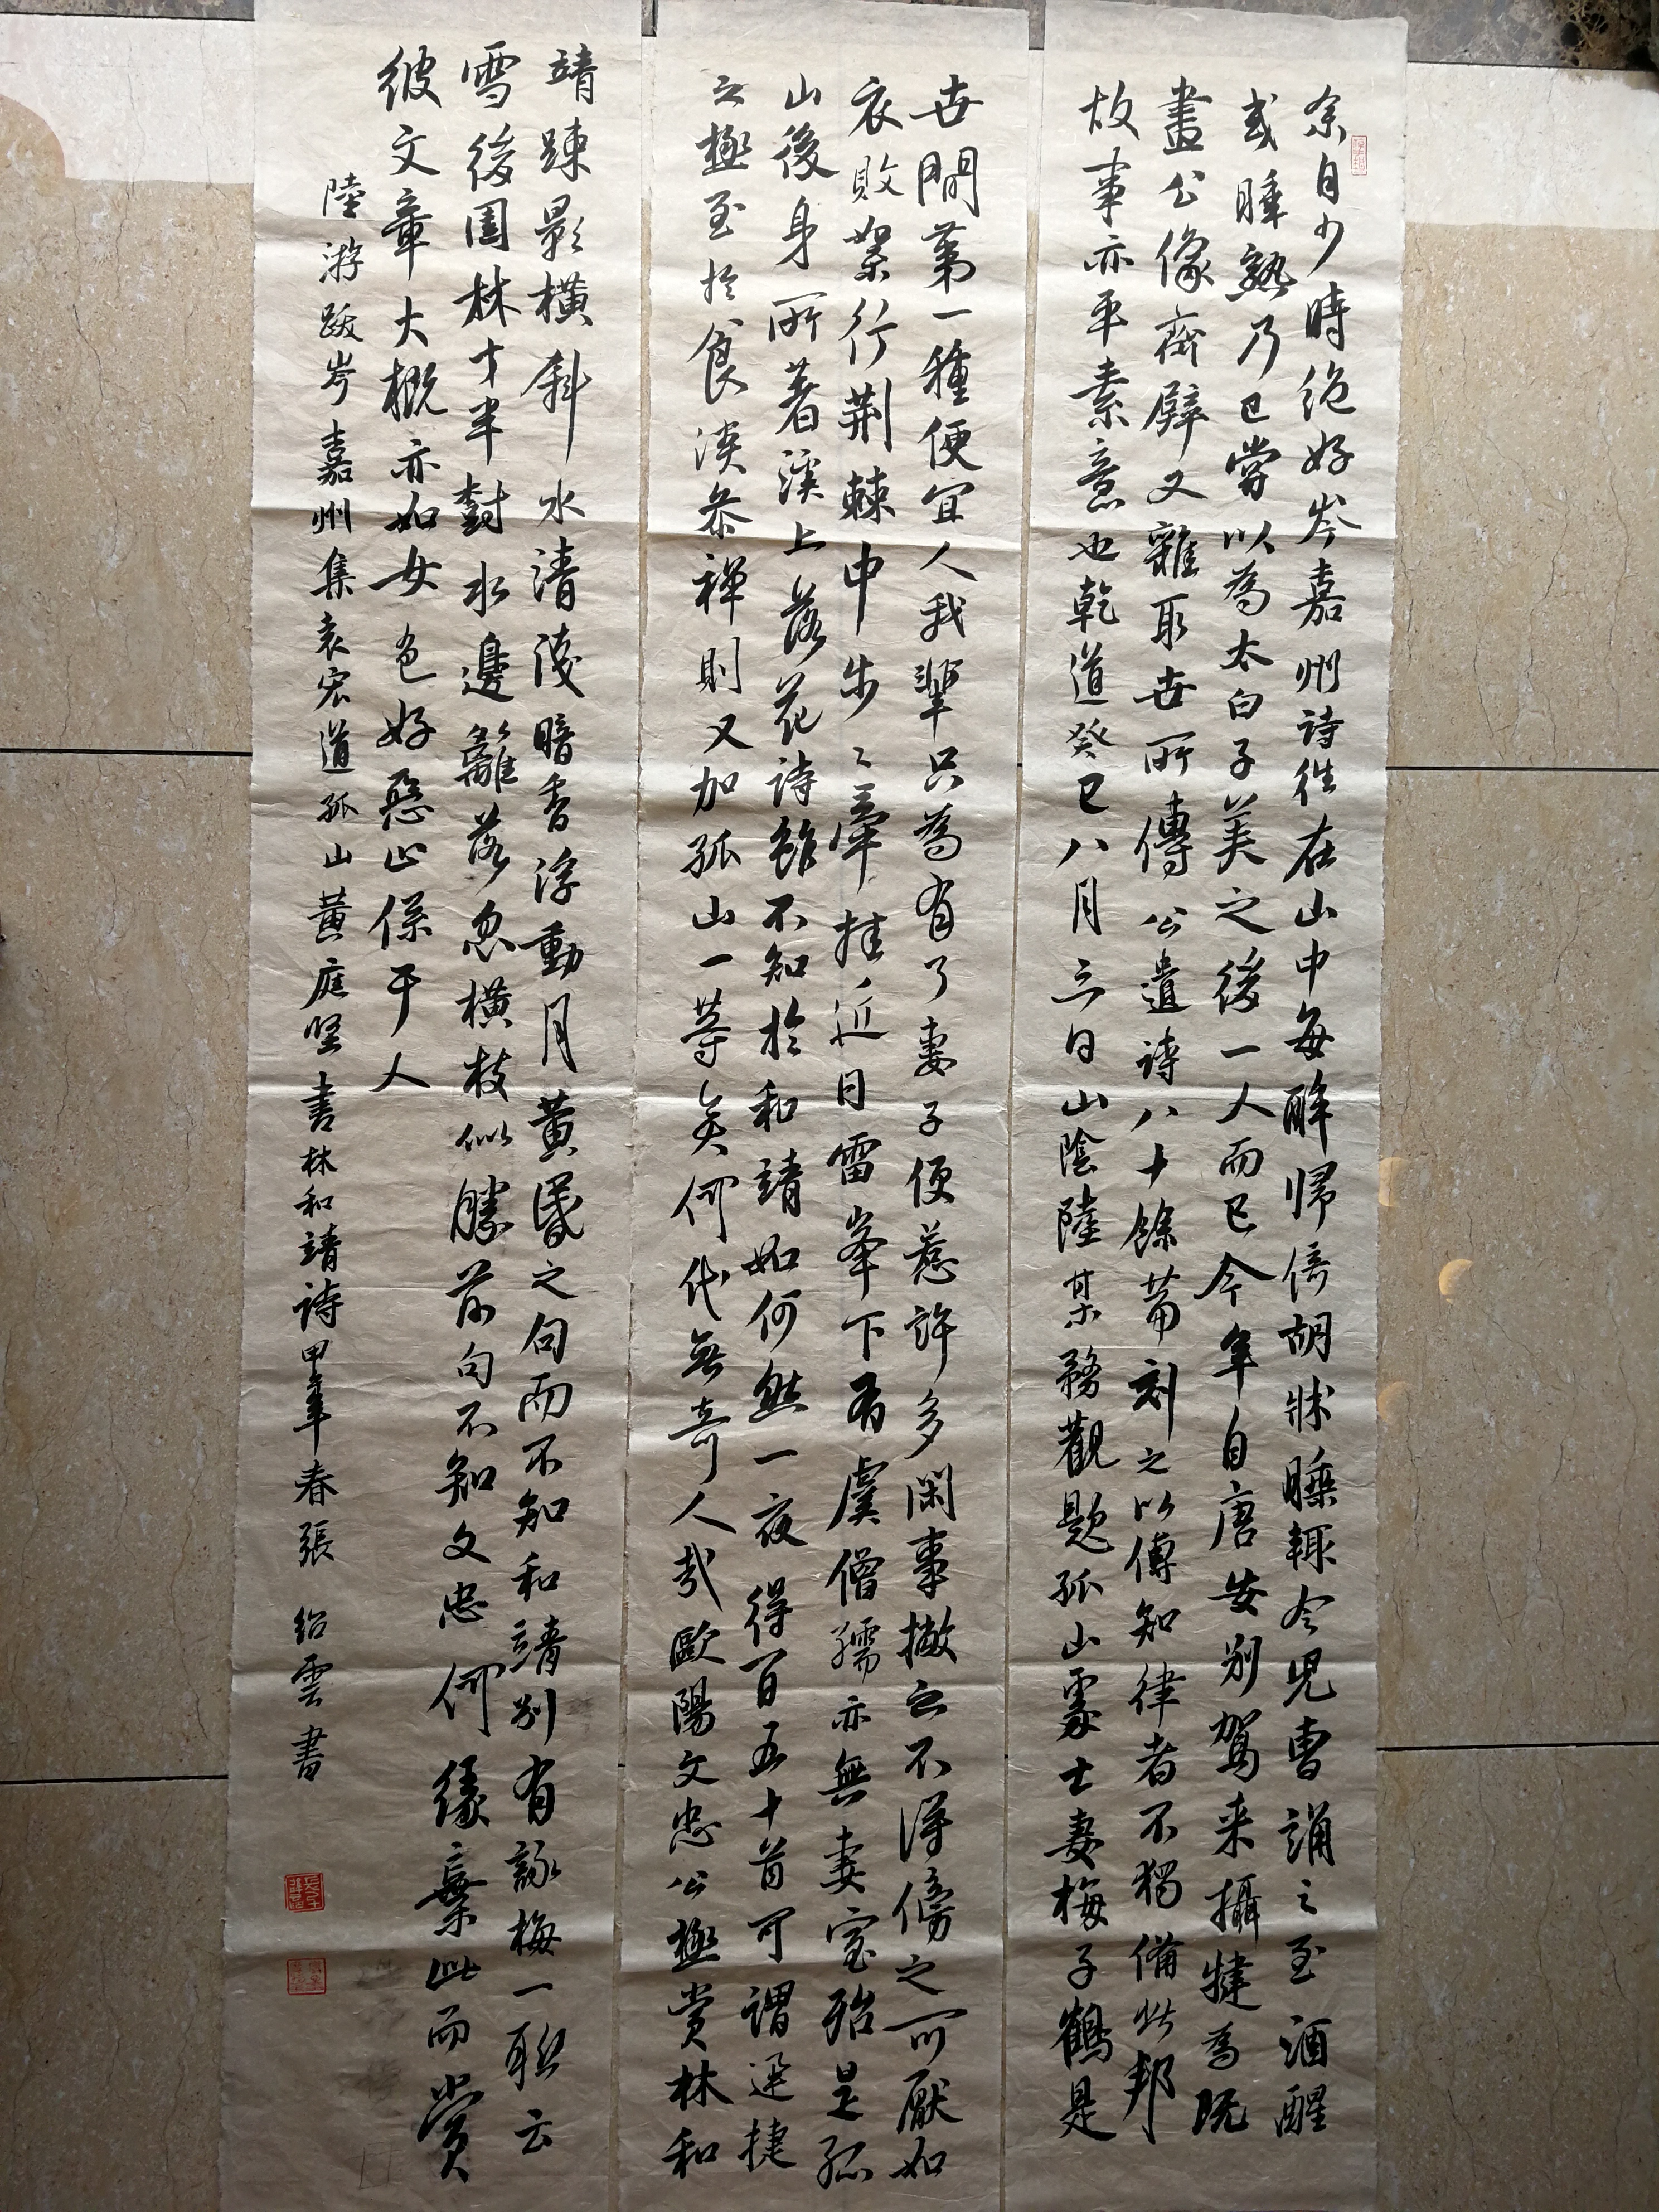 余自少時絶好岑嘉州詩往在山中每醉歸倚胡牀睡輒令児曹誦之至酒醒
或睡熟乃已嘗以為太白子美之後一人而已今年自唐安别駕来攝犍為既
畫公像齋壁又雜取世所傳公遺詩八十餘篇刻之以傳知律者不獨備此邦
故事亦平素意也乾道癸巳八月三日山陰陸某務觀題孤山處士妻梅子鶴是
世間第一種便宜人我輩只為有了妻子便惹許多閑事撇之不得傍之可厭如
衣敗絮行荆棘中步〻牽挂近日雷峯下有虞僧孺亦無妻室殆是孤
山後身所著溪上落花詩雖不知於和靖如何然一夜得百五十首可謂迅捷
之極至於食淡參禪則又加孤山一等矣何代無奇人哉歐陽文忠公極賞林和
靖踈影横斜水清淺暗香浮動月黄昏之句而不知和靖别有詠梅一聯云
雪後園林才半樹水邊籬落忽横枝似勝前句不知文忠何緣棄此而賞
彼文章大概亦如女色好惡止係于人
陸游跋岑嘉州集袁宏道孤山黄庭堅書林和靖詩甲年春張紹雲書